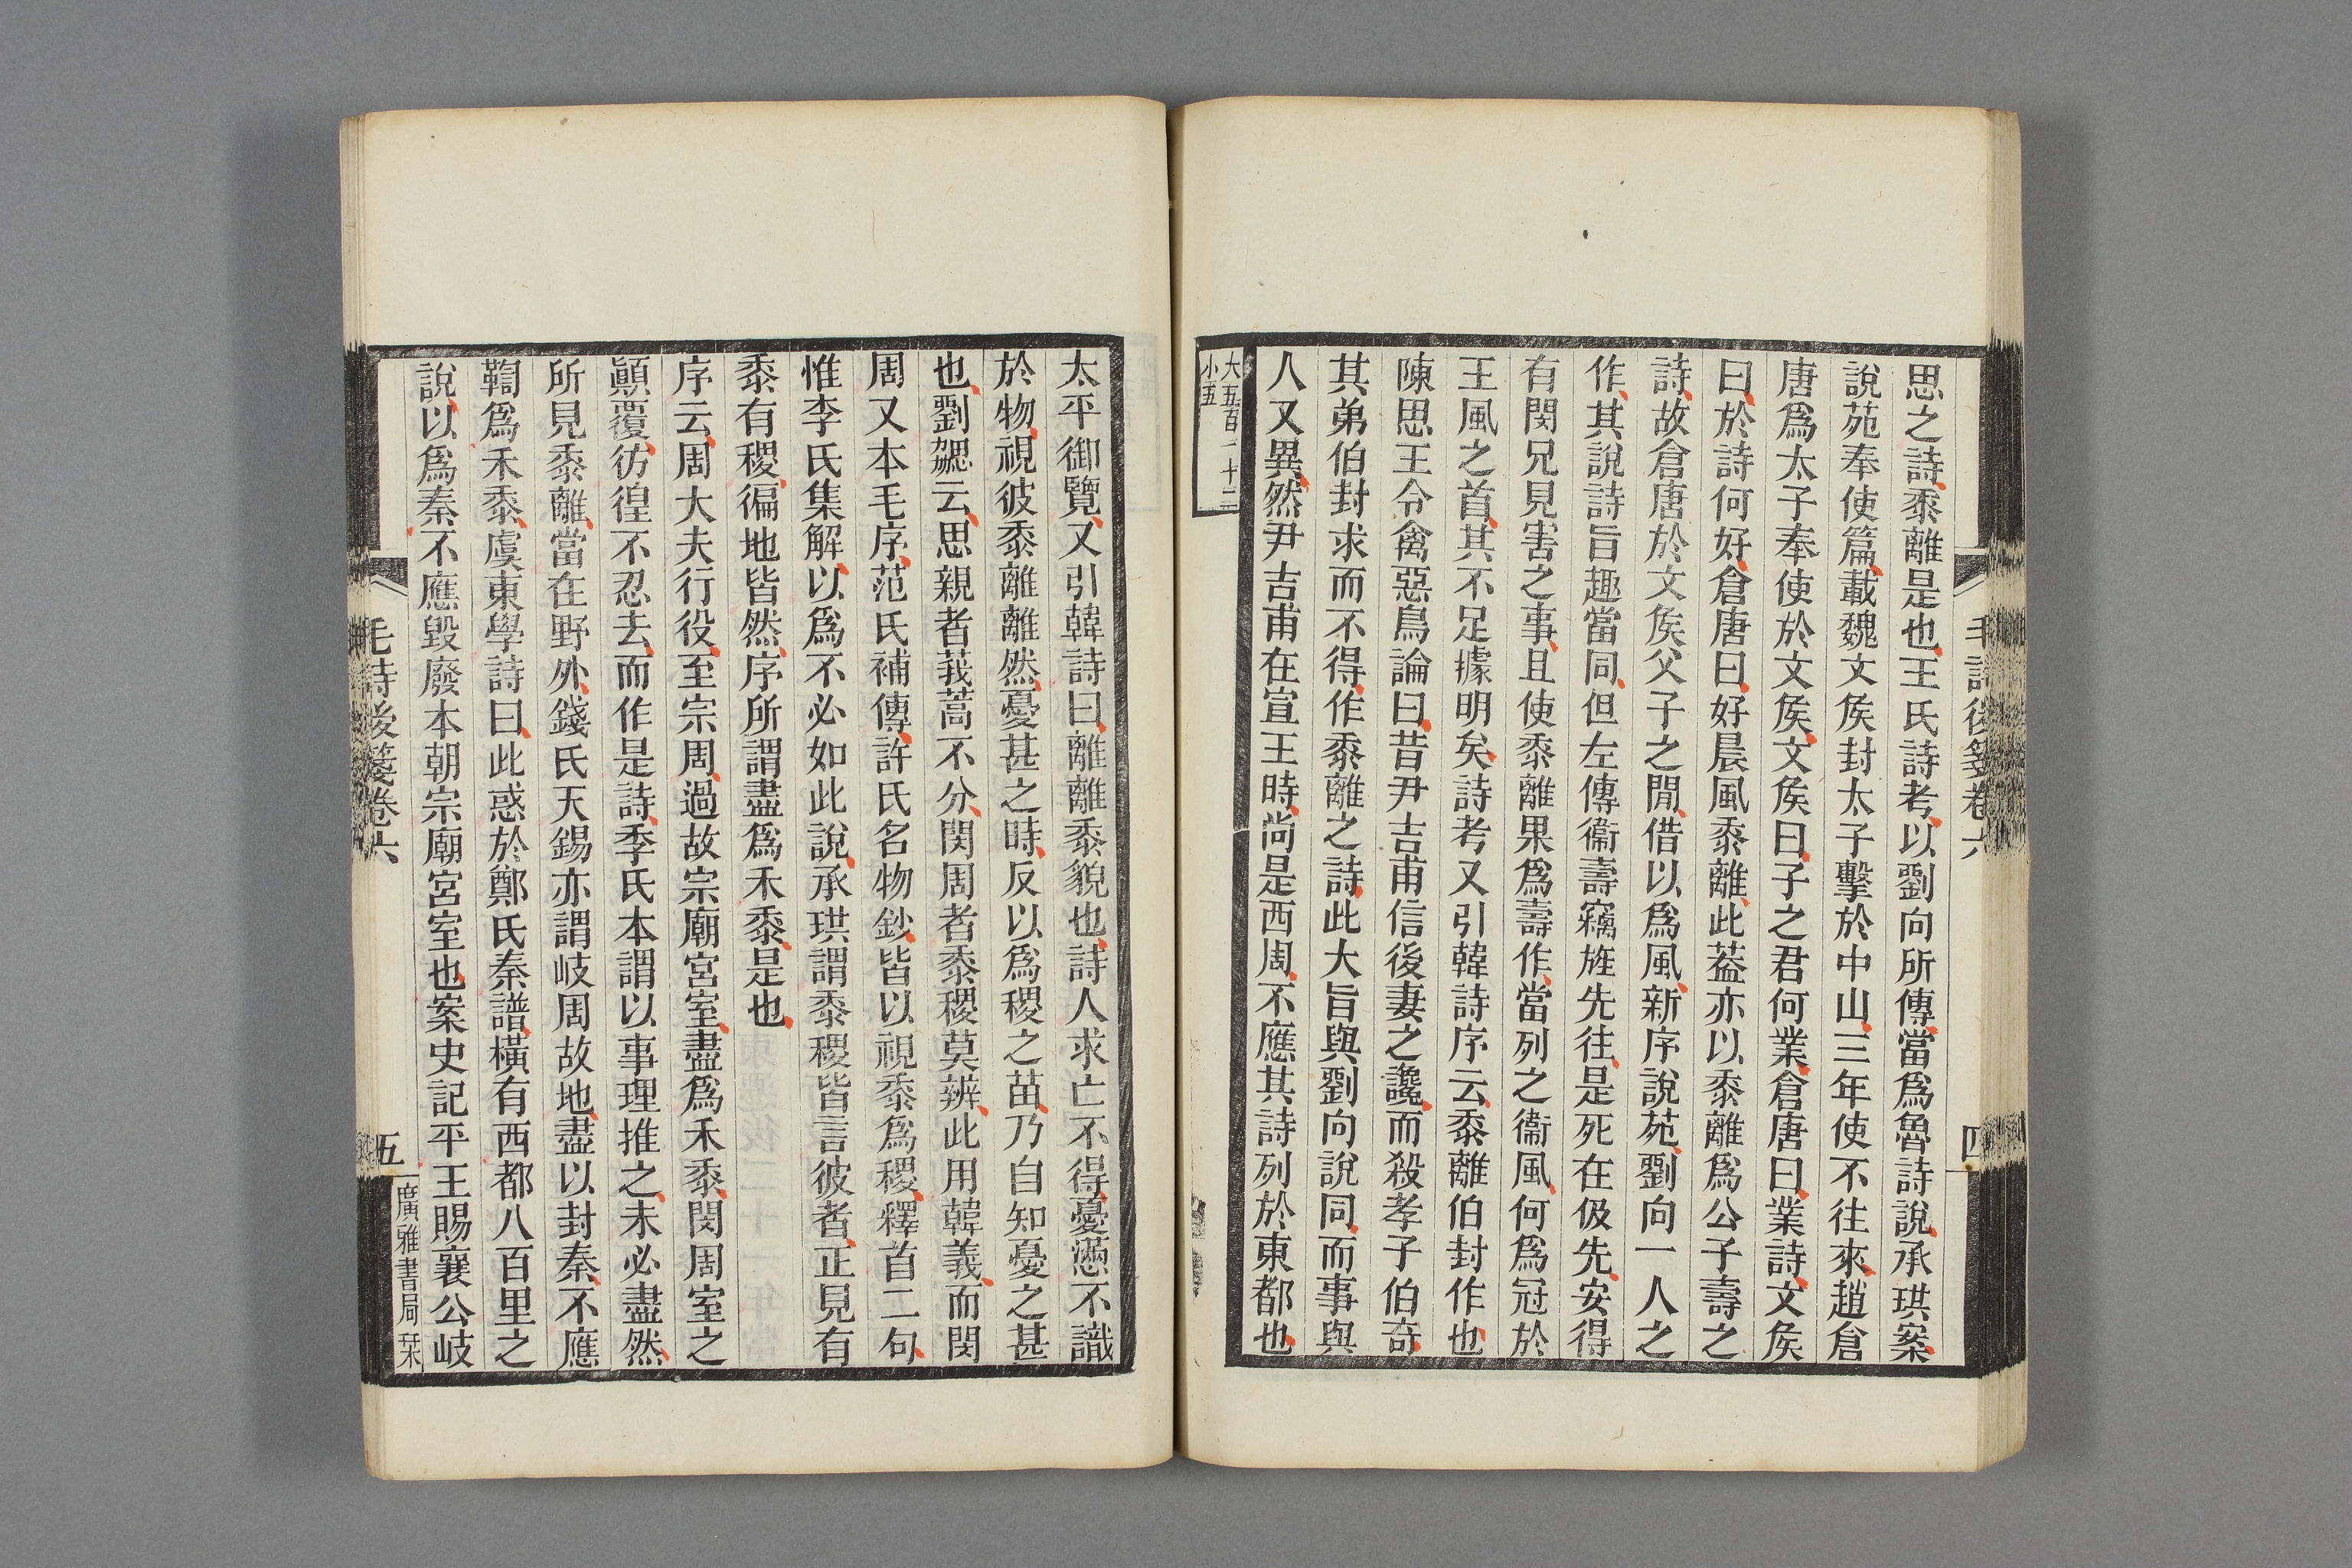 毛詩後箋卷六
四
思之詩黍離是也王氏詩考以劉向所傳當爲魯詩說承珙案
說苑奉使篇載魏文矦封太子擊於中山三年使不往來趙倉
唐爲太子奉使於文矦文矦曰子之君何業倉唐曰業詩文矦
曰於詩何好倉唐曰好晨風黍離此葢亦以黍離爲公子壽之
詩故倉唐於文矦父子之閒借以爲風新序說苑劉向一人之
作其說詩旨趣當同但左傳衞壽竊旌先往是死在伋先安得
有閔兄見害之事且使黍離果爲壽作當列之衞風何爲冠於
王風之首其不足據明矣詩考又引韓詩序云黍離伯封作也
陳思王令禽惡鳥論曰昔尹吉甫信後妻之讒而殺孝子伯奇
其弟伯封求而不得作黍離之詩此大旨與劉向說同而事與
人又異然尹吉甫在宣王時尚是西周不應其詩列於東都也
大五百二十二
小五
太平御覽又引韓詩曰離離黍貌也詩人求亡不得憂懣不識
於物視彼黍離離然憂甚之時反以爲稷之苗乃自知憂之甚
也劉勰云思親者莪蒿不分閔周者黍稷莫辨此用韓義而閔
周又本毛序范氏補傳許氏名物鈔皆以視黍爲稷釋首二句
惟李氏集解以爲不必如此說承珙謂黍稷皆言彼者正見有
黍有稷徧地皆然序所謂盡爲禾黍是也
序云周大夫行役至宗周過故宗廟宮室盡爲禾黍閔周室之
顚覆彷徨不忍去而作是詩季氏本謂以事理推之未必盡然
所見黍離當在野外錢氏天錫亦謂岐周故地盡以封秦不應
鞫爲禾黍虞東學詩曰此惑於鄭氏秦譜橫有西都八百里之
說以爲秦不應毀廢本朝宗廟宮室也案史記平王賜襄公岐
毛詩後箋卷六
五
廣雅書局栞